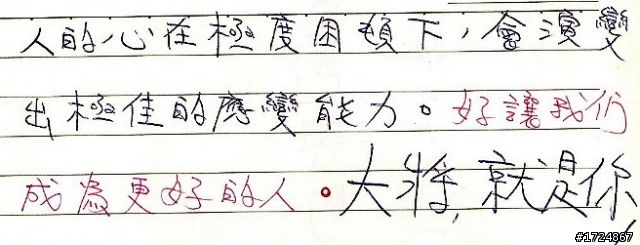 人的心在極度困頓下，會演變
出極佳的應變能力。好讓我们
成為更好的人。大將,就是你
#1724867